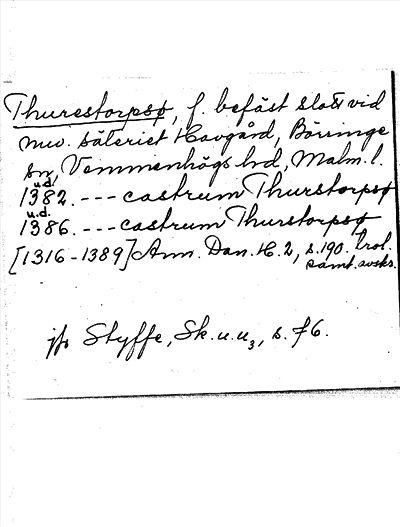 Thurestorpsø, f. befäst slott vid
nuv. säteriet Havgård, Böringe
sn, Vemmenhögs hd, Malm. l.
u.d.
1382. --- castrum Thurstorpsø
u.d.
1386. --- castrum Thurstorpsø
[1316-1389] Ann. Dan. H. 2, s. 190. trol.
samt. avskr.
jfr Styffe, Sk. u. u₃, s. 76.